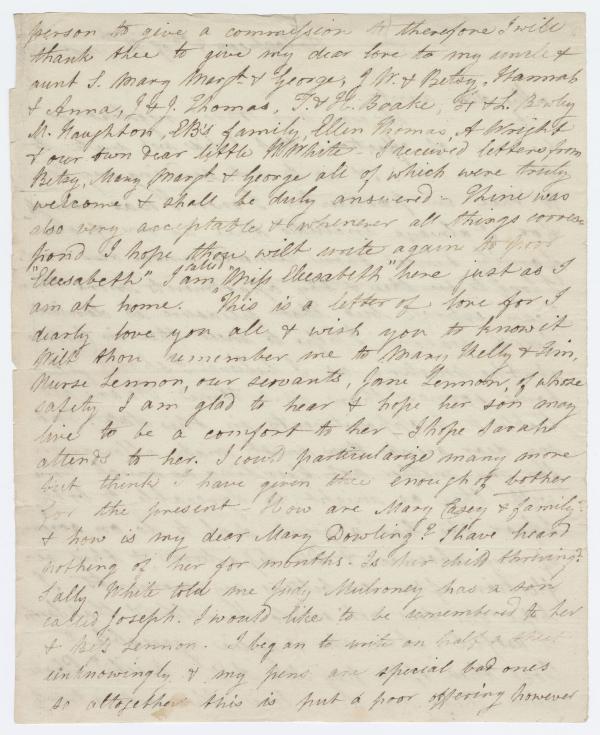 person to give a commission to therefore I will
thank thee to give my dear love to my uncle &
aunt S. Mary Margt & George, J W. & Betsy, Hannah
& Anna, J & J. Thomas, T & H. Boake, & L.
M. Naughton, EB's family, Ellen Thomas, A Wright
& our own dear little W White - I received letters from
Betsy, Mary Margt & George all of which were truly
welcome & shall be duly answered - Thine was
also very acceptable & whenever all things corres-
pond I hope thou wilt write again to poor
"Elecsabeth" I am called "Miss Elecsabeth" here just as I
am at home. This is a letter of love for I
dearly love you all & wish you to know it
Wilt thou remember me to Mary Kelly & Jim,
Nurse Lennon, our servants, Jane Lennon, of whose
safety I am glad to hear & hope her son may
live to be a comfort to her - I hope Sarah
attends to her. I could particularize many more
but think I have given thee enough of bother
for the present - How are Mary Casey & family?
& how is my dear Mary Dowling? I have heard
nothing of her for months. Is her child thriving?
Sally White told me Judy Mulroney has a son
called Joseph. I would like to be remembered to her
& Lennon. I began to write on half a sheet
unknowingly & my pens are special bad ones
so altogether this is but a poor offering however